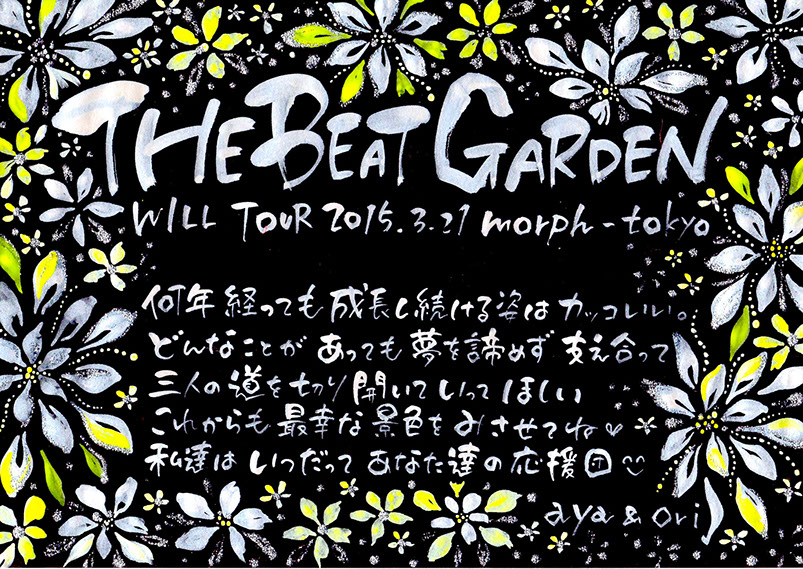 THE BEAT GARDEN
WILL TOUR 2015.3.21 morph-tokyo
何年経っても成長し続ける姿はカッコいい。
どんなことがあっても夢を諦めず支え合って
三人の道を切り開いていってほしい
これからも最幸な景色をみさせてね♡
私達はいつだってあなた達の応援団
aya & ori